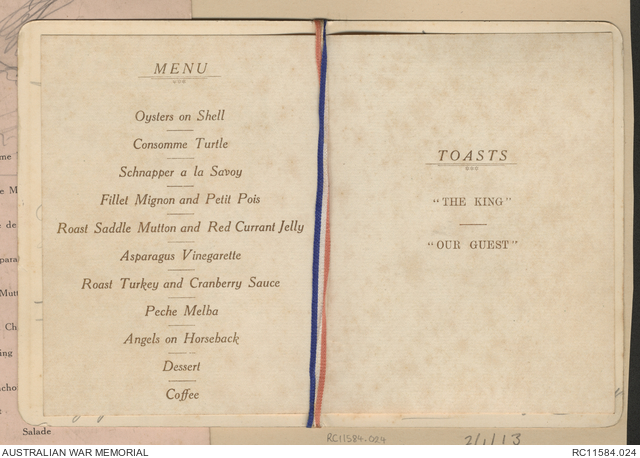 MENU
Oysters on Shell
Consomme Turtle
Schnapper a la Savoy
Fillet Mignon and Petit Pois
Roast Saddle Mutton and Red Currant Jelly
Asparagus Vinegarette
Roast Turkey and Cranberry Sauce
Peche Melba
Angels on Horseback
Dessert
Coffee
TOASTS
"THE KING"
"OUR GUEST"
Salade
RC11584.024
2/1/13
AUSTRALIAN WAR MEMORIAL
RC11584.024